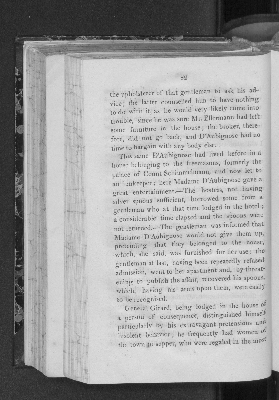 82
the upholsterer of that gentleman to ask his ad-
vice; the latter counselled him to have nothing
to do with it as he would very likely come into
trouble, since he was sure Mr. Ellermann had left
some furniture in the house; the broker, there-
fore, did not go back, and D'Aubignosc had no
time to bargain with any body else.
This same D'Aubignosc had lived before in a
house belonging to the freemasons, formerly the
palace of Count and now let to
an innkeeper; here Madame D'Aubignosc gave a
great entertainment.—The hostess, not having
silver spoons sufficient, borrowed some from a
gentleman who at that time lodged in the hotel;
a considerable time elapsed and the spoons were
not returned.—The gentleman was informed that
Madame D'Aubignosc would not give them up,
pretending that they belonged to the house,
which, she said, was furnished for her use; the
gentleman at last, having been repeatedly refused
admission, went to her apartment and, by threat-
ening to publish the affair, recovered his spoons,
which, having his arms upon them, were easily
to be recognised.
General Girard, being lodged in the house of
a person of consequence, distinguished himself
particularly by his extravagant pretensions and
insolent behavior; he frequently had women of
the town to supper, who were regaled in the most